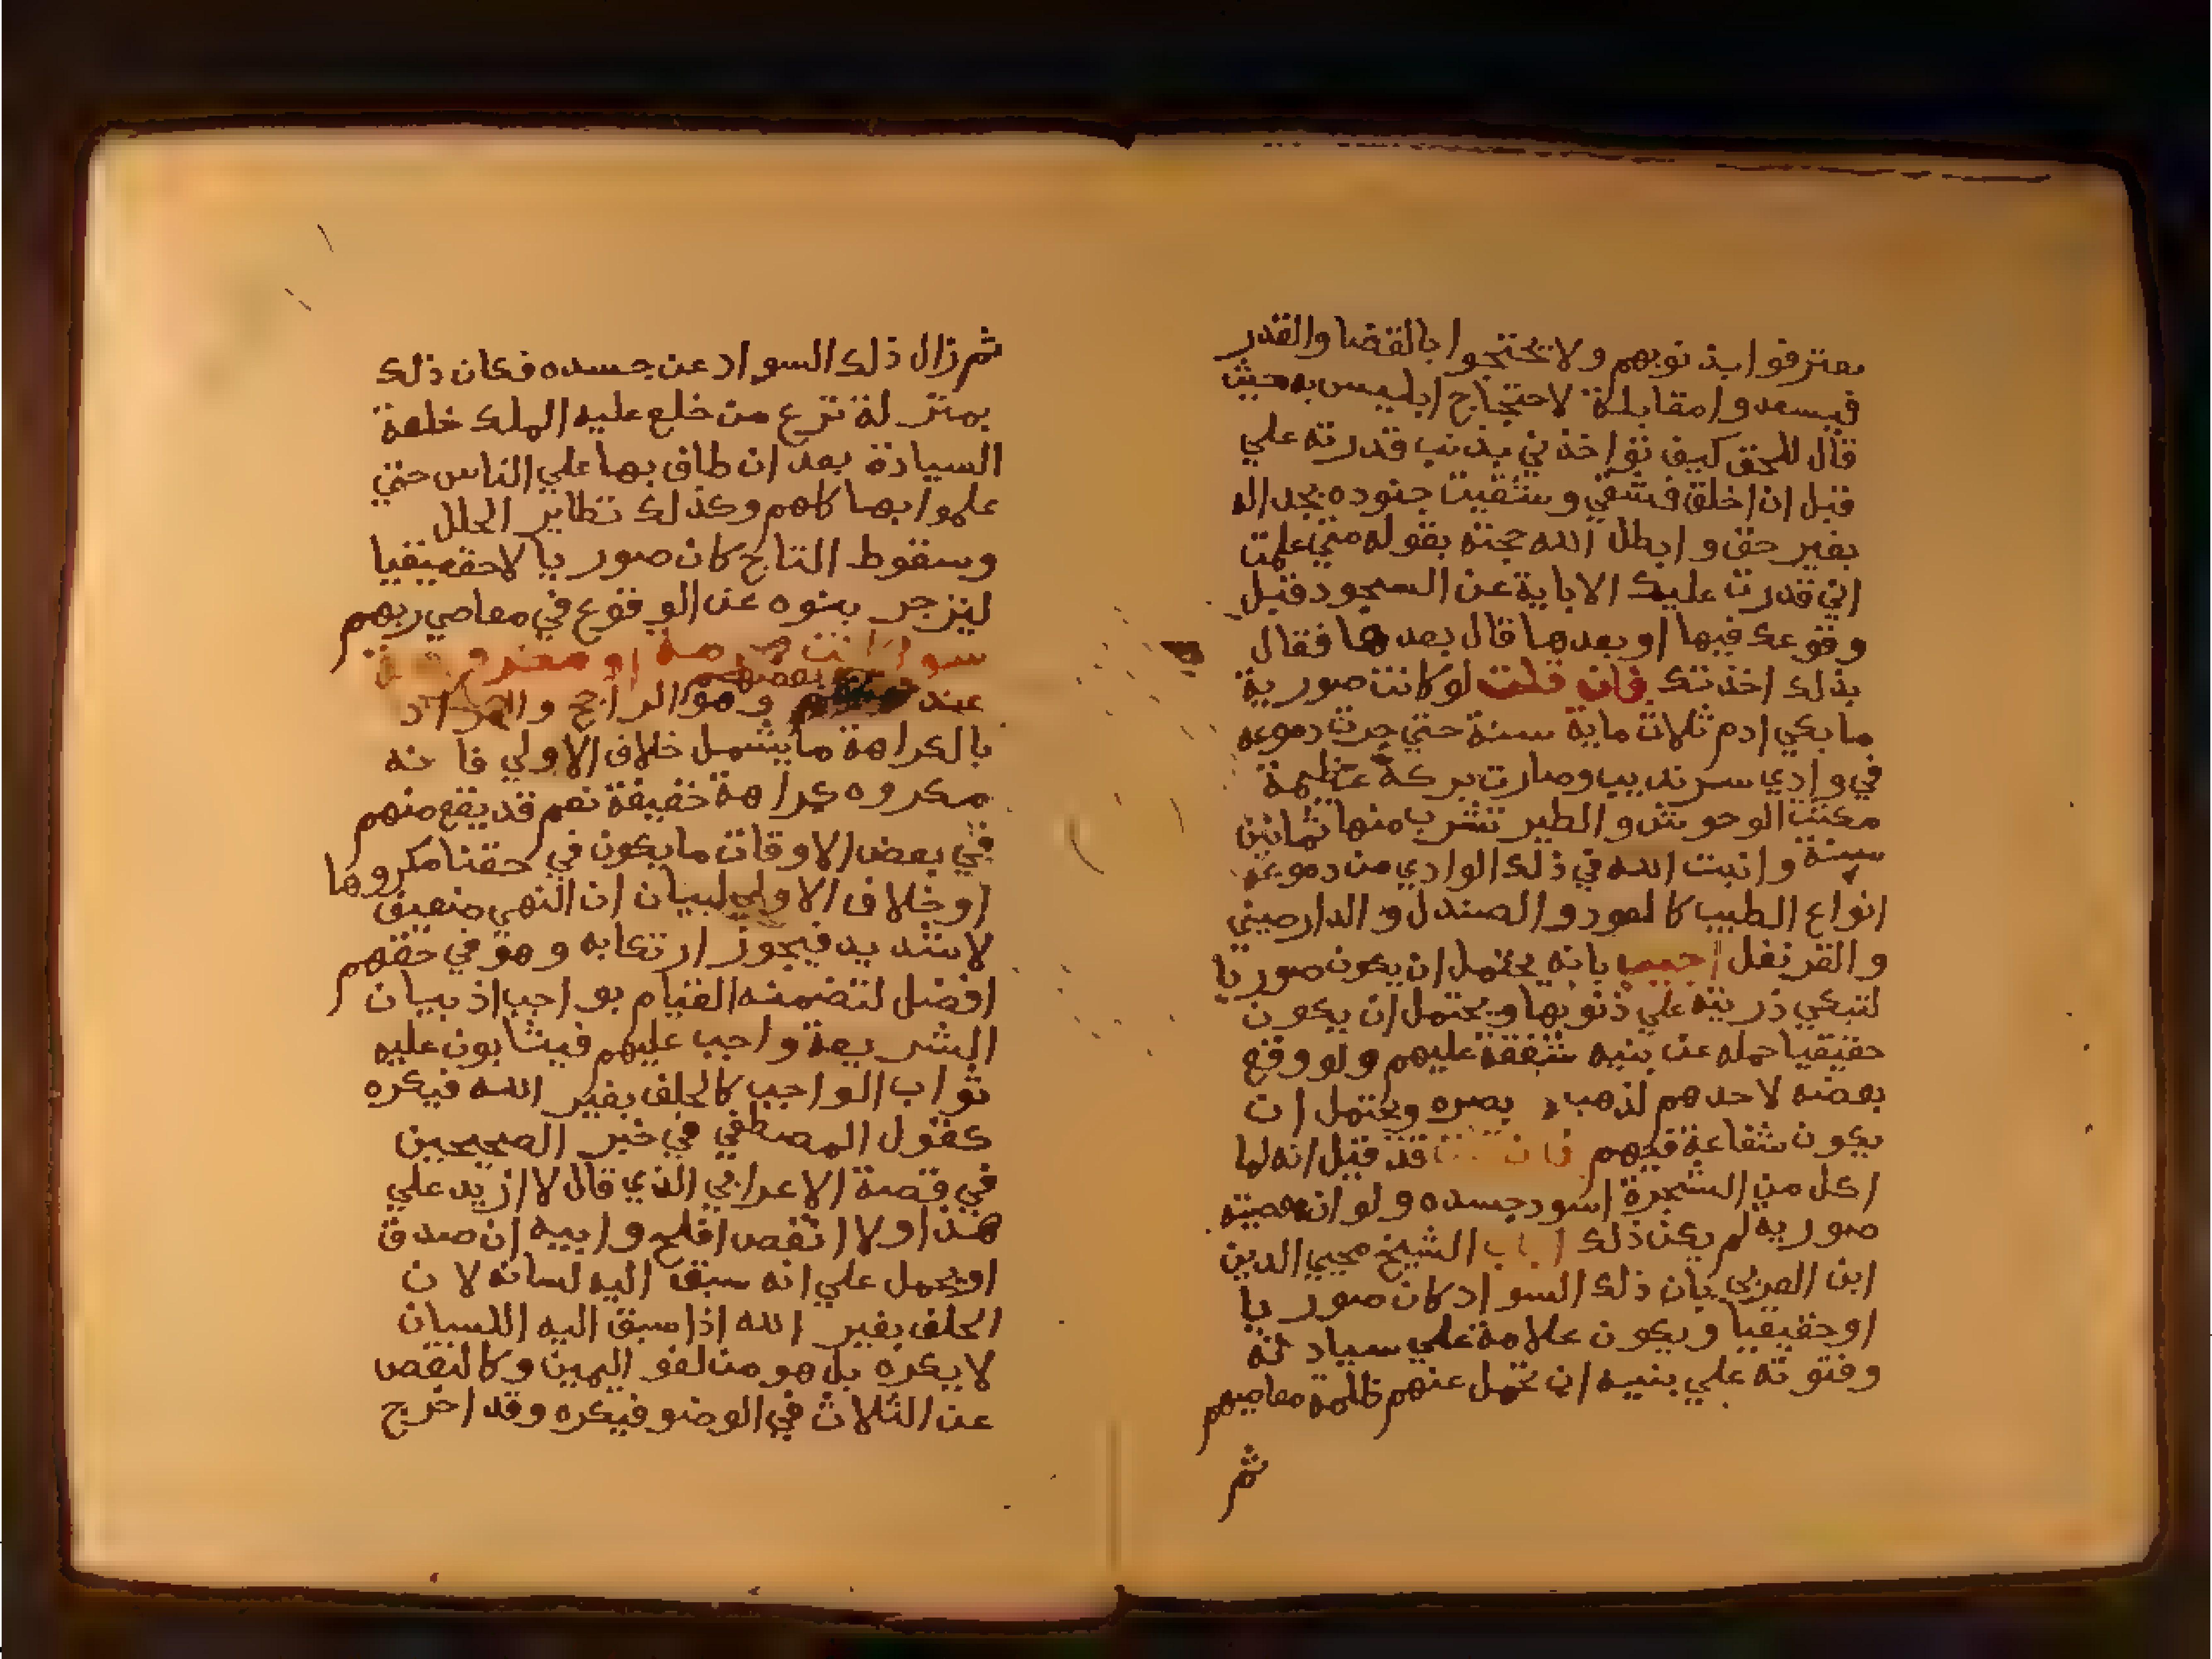 يعترفوا بذنوبهم ولا يحتجوا بالقضا والقدر
فيسعدوا مقابلة لاحتجاج ابليس به حيث
قال للحق كيف تؤاخذني بذنب قدرته علي
قبل ان اخلق فشقي وشقيت جنوده بجداله
بغير حق وابطل الله حجته بقوله متي علمت
اني قدرت عليك الاباية عن السجود قبل
وقوعك فيها او بعدها قال بعدها فقال
بذلك اخذتك فان قلت لو كانت صورية
ما بكي ادم ثلاث ماية سنة حتي جرت دموعه
في وادي سرنديب وصارت بركة عظيمة
مكثت الوحوش والطير تشرب منها ثمانين
سنة وانبت الله في ذلك الوادي من دموعه
انواع الطيب كالعود والصندل والدارصيني
والقرنفل اجيب بانه يحتمل ان يكون صوريا
لتبكي ذريته علي ذنوبها ويحتمل ان يكون
حقيقيا حمله عن بنيه شفقة عليهم ولو وقع
بعضه لاحدهم لذهب بصره ويحتمل ان
يكون شفاعة فيهم فان قد قيل انه لما
اكل من الشجرة اسود جسده ولو ان معصيته
صورية لم يكن ذلك الشيخ محيي الدين
ابن العربي بان ذلك السواد كان صوريا
او حقيقيا ويكون علامة علي سيادته
وفتوته علي بنيه ان تحمل عنهم ظلمة معاصيهم
ثم
ثم زال ذلك السواد عن جسده فكان ذلك
بمنزلة نزع من خلع عليه الملك خلعة
السيادة بعد ان طاف بها علي الناس حتي
علموا بها كلهم وكذلك تطاير الحلل
وسقوط التاج كان صوريا لا حقيقيا
لينزجر بنوه عن الوقوع في معاصي ربهم
سوا او
عند بعضهم وهو الراجح والمراد
بالكراهة ما يشمل خلاف الاولي فانه
مكروه كراهة خفيفة نعم قد يقع منهم
في بعض الاوقات ما يكون في حقنا مكروها
او خلاف الاولي لبيان ان النهي
لا شديد فيجوز ارتكابه وهو في حقهم
افضل لتضمنه القيام بواجب اذ بيان
الشريعة واجب عليهم فيثابون عليه
ثواب الواجب كالحلف بغير الله فيكره
كقول المصطفي في خبر الصحيحين
في قصة الاعرابي الذي قال لا ازيد علي
هذا ولا انقص افلح وابيه ان صدق
او يحمل علي انه سبق اليه لسانه لان
الحلف بغير الله اذا سبق اليه اللسان
لا يكره بل هو من لغو اليمين وكالنقص
عن الثلاث في الوضو فيكره وقد اخرج